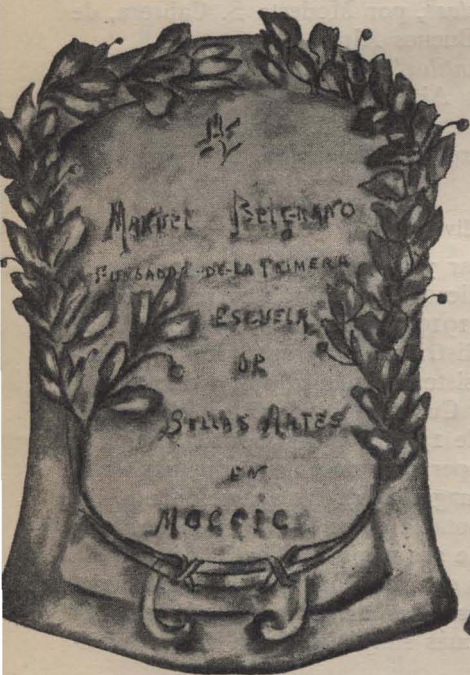 A
MANUEL BELGRANO
FUNDADOR-DE-LA PRIMERA
ESCUELA
DE
BELLAS ARTES
EN